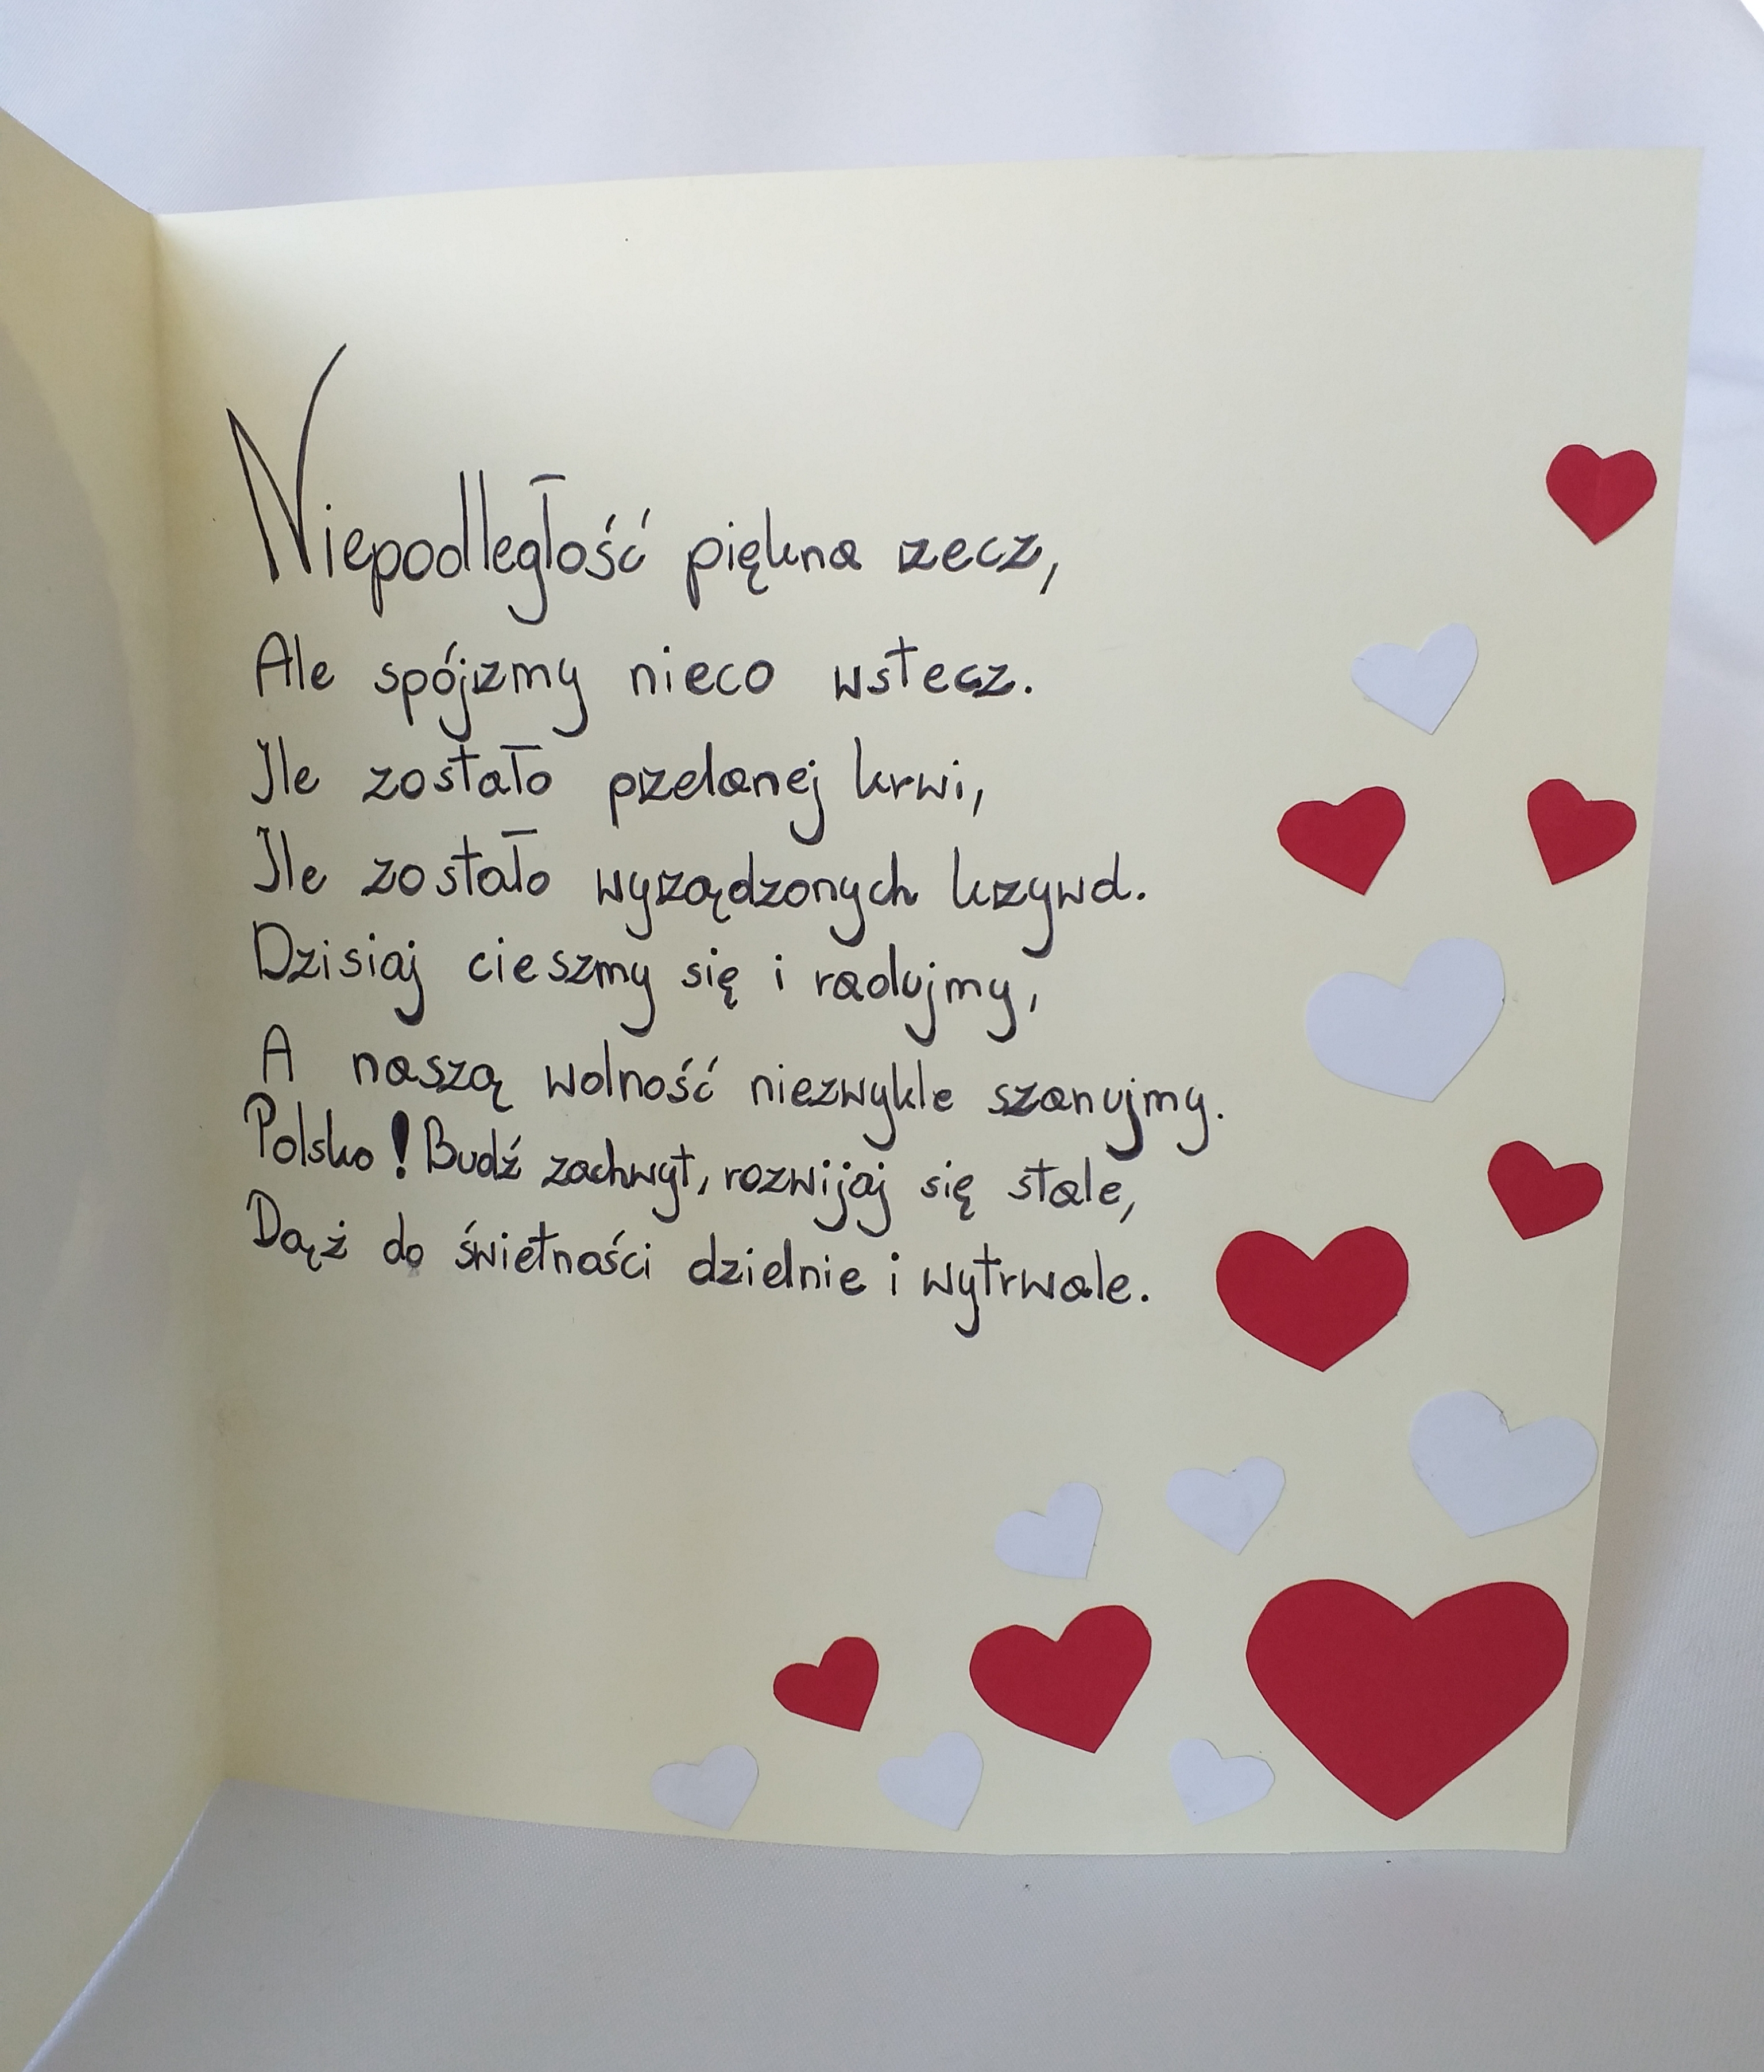 Niepodległość piękna rzecz,
Ale spójrzmy nieco wstecz.
Ile zostało przelanej krwi,
Ile zostało wyrządzonych krzywd.
Dzisiaj cieszmy się i radujmy,
A naszą wolność niezwykle szanujmy.
Polsko! Budź zachwyt, rozwijaj się stale,
Dąż do świetności dzielnie i wytrwale.